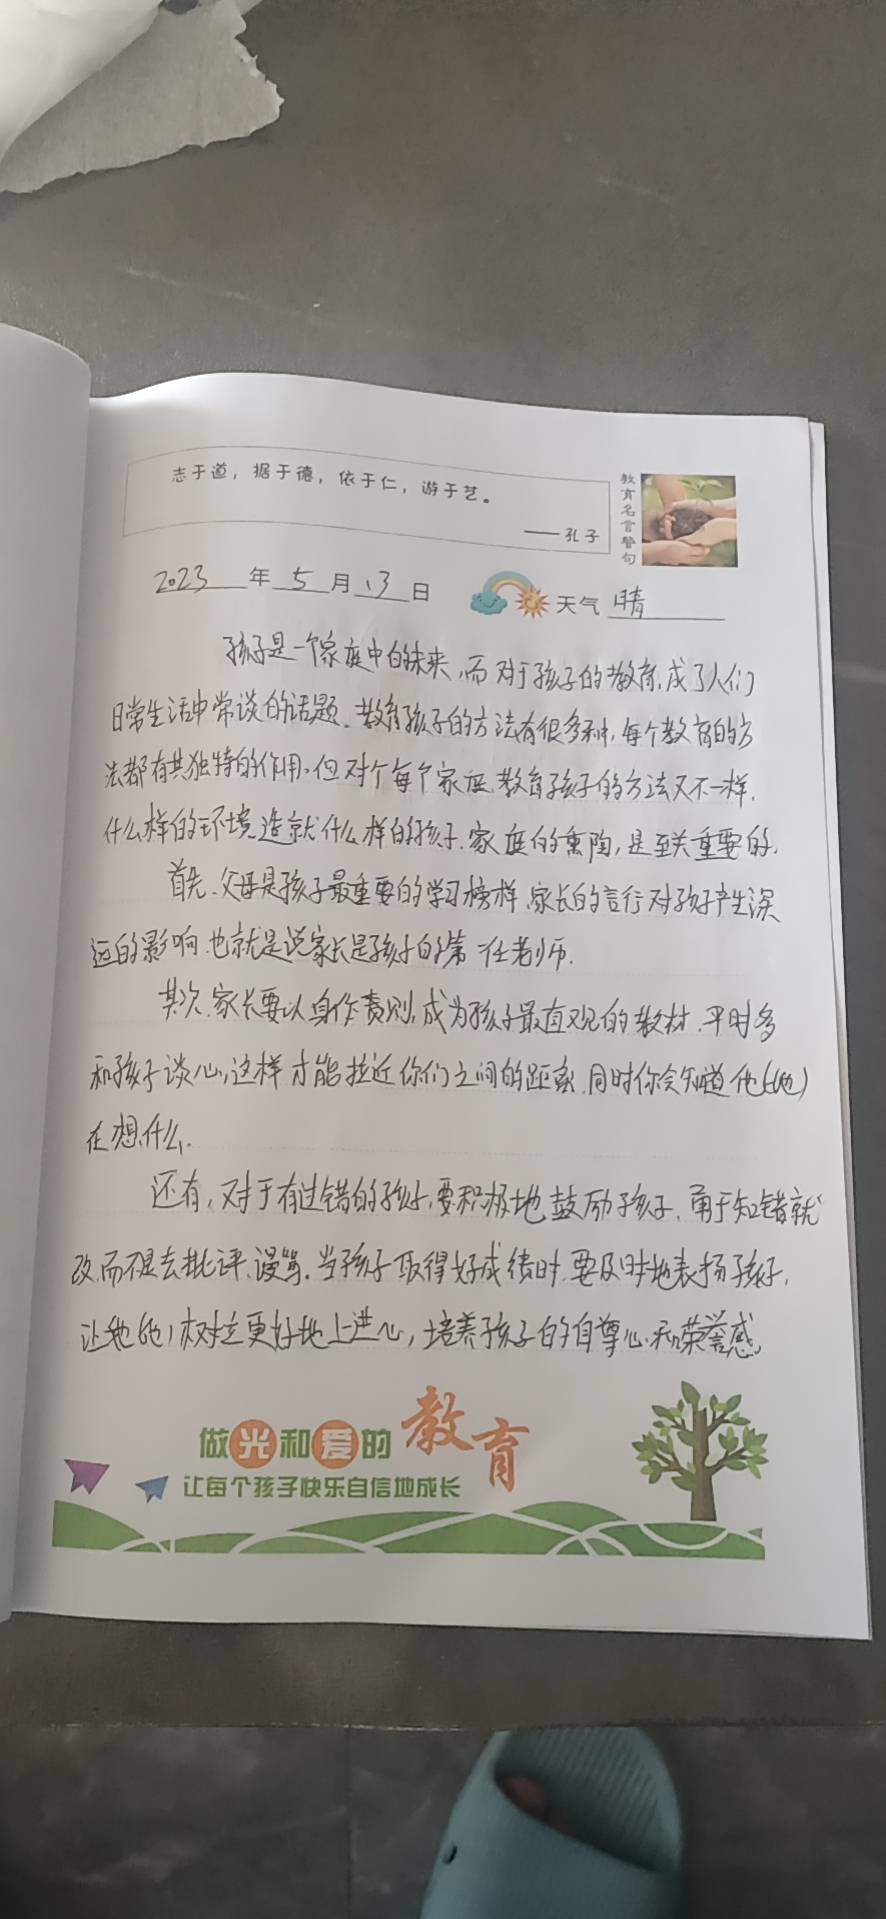 志于道，据于德，依于仁，游于艺。
——孔子
教育名言警句
2023年5月13日 天气 晴
孩子是一个家庭中的未来,而对于孩子的教育,成了人们
日常生活中常谈的话题.教育孩子的方法有很多种,每个教育的方
法都有其独特的作用.但对个每个家庭,教育孩子的方法又不一样.
什么样的环境造就什么样的孩子.家庭的熏陶,是至关重要的.
首先.父母是孩子最重要的学习榜样.家长的言行对孩子产生深
远的影响.也就是说家长是孩子的第一任老师.
其次.家长要以身作责则,成为孩子最直观的教材.平时多
和孩子谈心,这样才能拉近你们之间的距离.同时你会知道他(她)
在想什么.
还有,对于有过错的孩子,要积极地鼓励孩子.勇于知错就
改,而不是去批评.谩骂.当孩子取得好成绩时.要及时地表扬孩子,
让他(她)树立更好地上进心,培养孩子的自尊心和荣誉感.
做光和爱的教育
让每个孩子快乐自信地成长